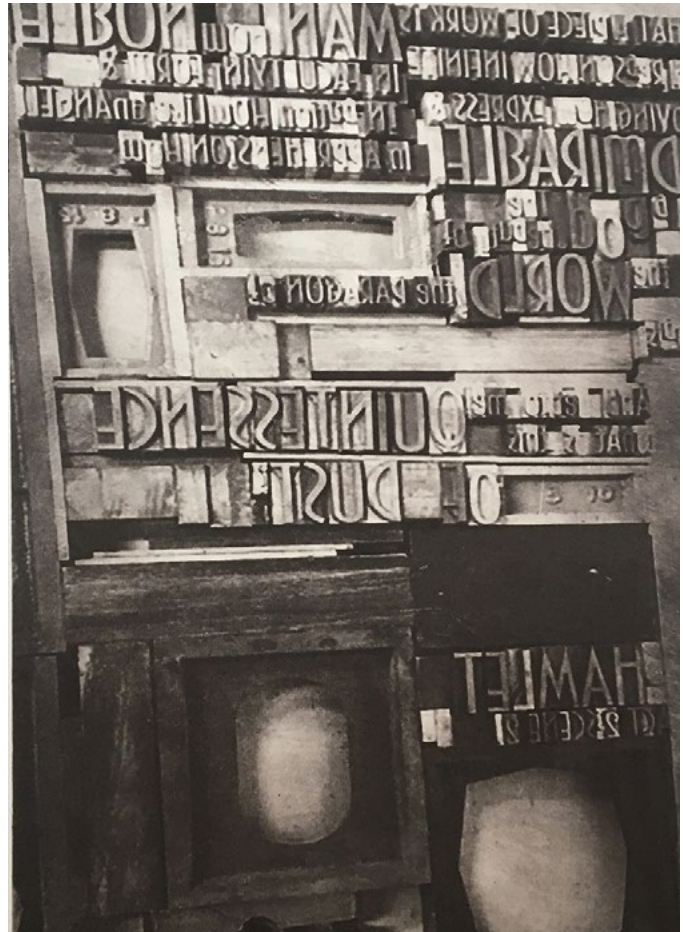 HAT A PIECE OF WORK IS MAN how NOBLE
REASON HOW INFINITE IN FACULTY IN FORM &
OVING how EXPRESS & IN action HOW Like an ANGEL
DMIRABLE IN APPREHENSION HOW
god! the beauty of
the WORLD the PARAGON of
And yet to me
what is this QUINTESSENCE
OF DUST
HAMLET
ACT 2 SCENE 2